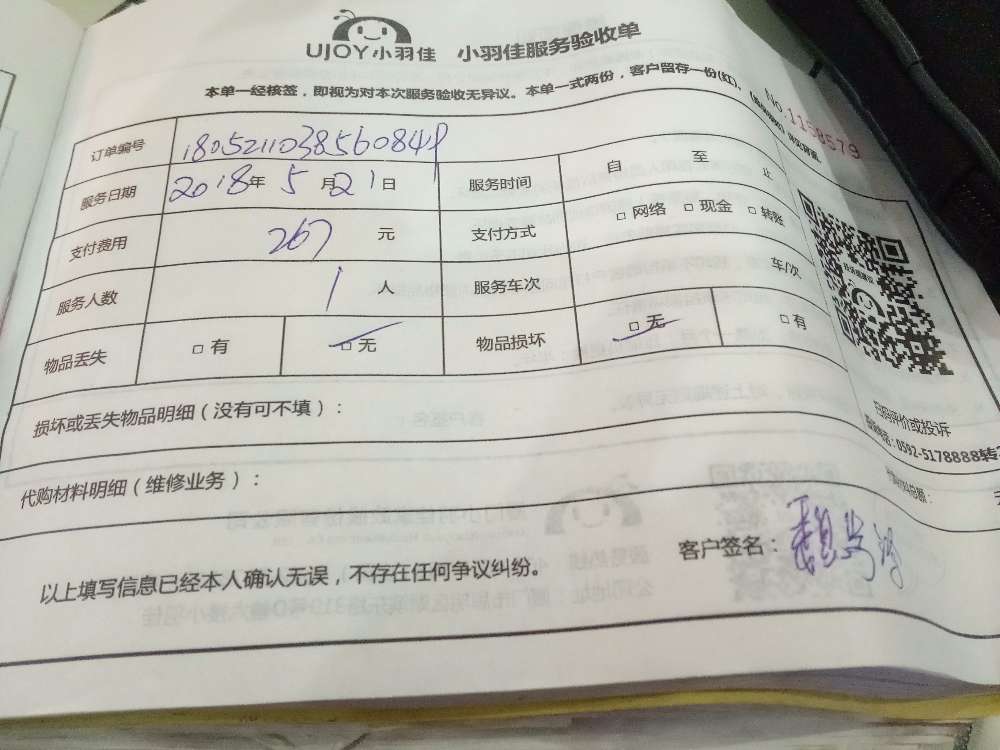 UJOY小羽佳 小羽佳服务验收单
No.1158579
本单一经核签，即视为对本次服务验收无异议。本单一式两份，客户留存一份(红)。
订单编号 180521103856084
服务日期 2018年5月21日 服务时间 自 至 止
支付费用 267 元 支付方式 □ 网络 □ 现金 □ 转账
服务人数 1 人 服务车次 车/次
物品丢失 □ 有 □ 无 物品损坏 □ 无 □ 有
损坏或丢失物品明细（没有可不填）：
扫码评价或投诉
0592-5178888转
代购材料明细（维修业务）：
客户签名：
以上填写信息已经本人确认无误，不存在任何争议纠纷。